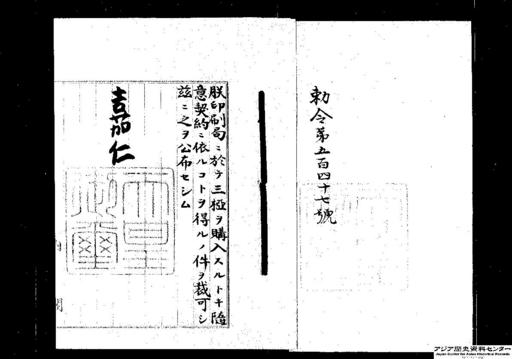 勅令第五百四十七號
朕印刷局ニ於テ三椏ヲ購入スルトキ隨
意契約ニ依ルコトヲ得ルノ件ヲ裁可シ
茲ニ之ヲ公布セシム
嘉仁
天皇御璽
内閣
アジア歴史資料センター
Japan Center for Asian Historical Records